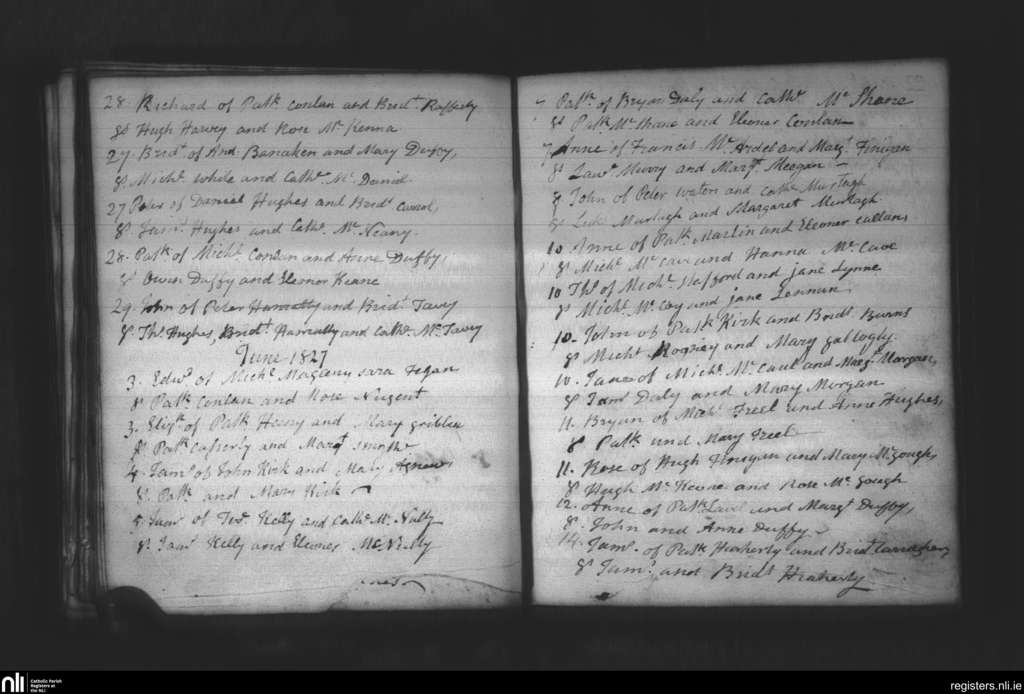 28 Richard of Patk. Conlan and Bridt. Rafferty
Hugh Harvy and Rose Mc Kenna
27. Bridt. of And. Banaken and Mary Duffy,
Michl. while and Cathe. Mc. Daniel
27 Peter of Daniel Hughes and Bridt.
Hughes and Cathe. Mc. Neany.
28. Patk. of Michl. Conlan and Anne Duffy
Owen Duffy and Elenor Keane
29. John of Peter Hanratty and Bridt.
Ths. Hughes, Bridt. Hanratty and Cathe. Mc.
June 1827
3. Edwd. of Michl. sara Fegan
Patk. Conlan and Rose Nugent
3. of Patk. and Mary
Patk. Caferty and Margt. smith
4. Jams. of John Kirk and Mary Agnew
Patk. and Mary Kirk
5. of Kelly and Cathe. Mc. Nulty
Jams. Kelly and Elenor McNully
Patk. of Bryan Daly and Cathe. Mc Shane
Patk. Mc Shane and Elenor Conlan
7 Anne of Francis Mc. Ardel and Margt. Finigan
Lawe. and Margt. Meegan
8 John of Peter water and Cathe. Murtagh
Murtagh and Margaret Murtagh
10 Anne of Patk. Martin and Eleoner Cullan
Michl. Mc Cave and Hanna Mc. Cave
10 Ths. of Michl. Stafford and jane Lynne
Michl. Mc. Coy and jane Lennun
10. John of Patk. Kirk and Bridt. Burns
Michl. Rooney and Mary Gallogly.
10. Jane of Michl. Mc. Caul and Margt. Morgan,
Jams. Daly and Mary Morgan
11. Bryan of Michl. Freel and Anne Hughes,
Patk. and Mary Freel
11. Rose of Hugh Finegan and Mary Mc.gough,
Hugh Mc. Keone and Rose Mc. gough
12. Anne of Patk. and Margt. Duffy,
John and Anne Duffy
14. Jams. of Patk. Heaherty and Bridt. Carragher,
Jams. and Bridt. Heaherty
nli
Catholic Parish
Registers at
the NLI
registers.nli.ie